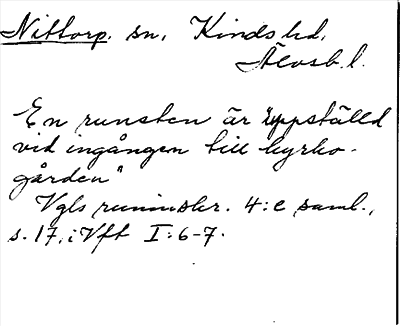 Nittorp. sn, Kinds hd,
Älvsb. l.
En runsten är "uppställd
vid ingången till kyrko-
gården"
Vgls runinskr. 4:e saml.,
s. 17, i Vft I:6-7.